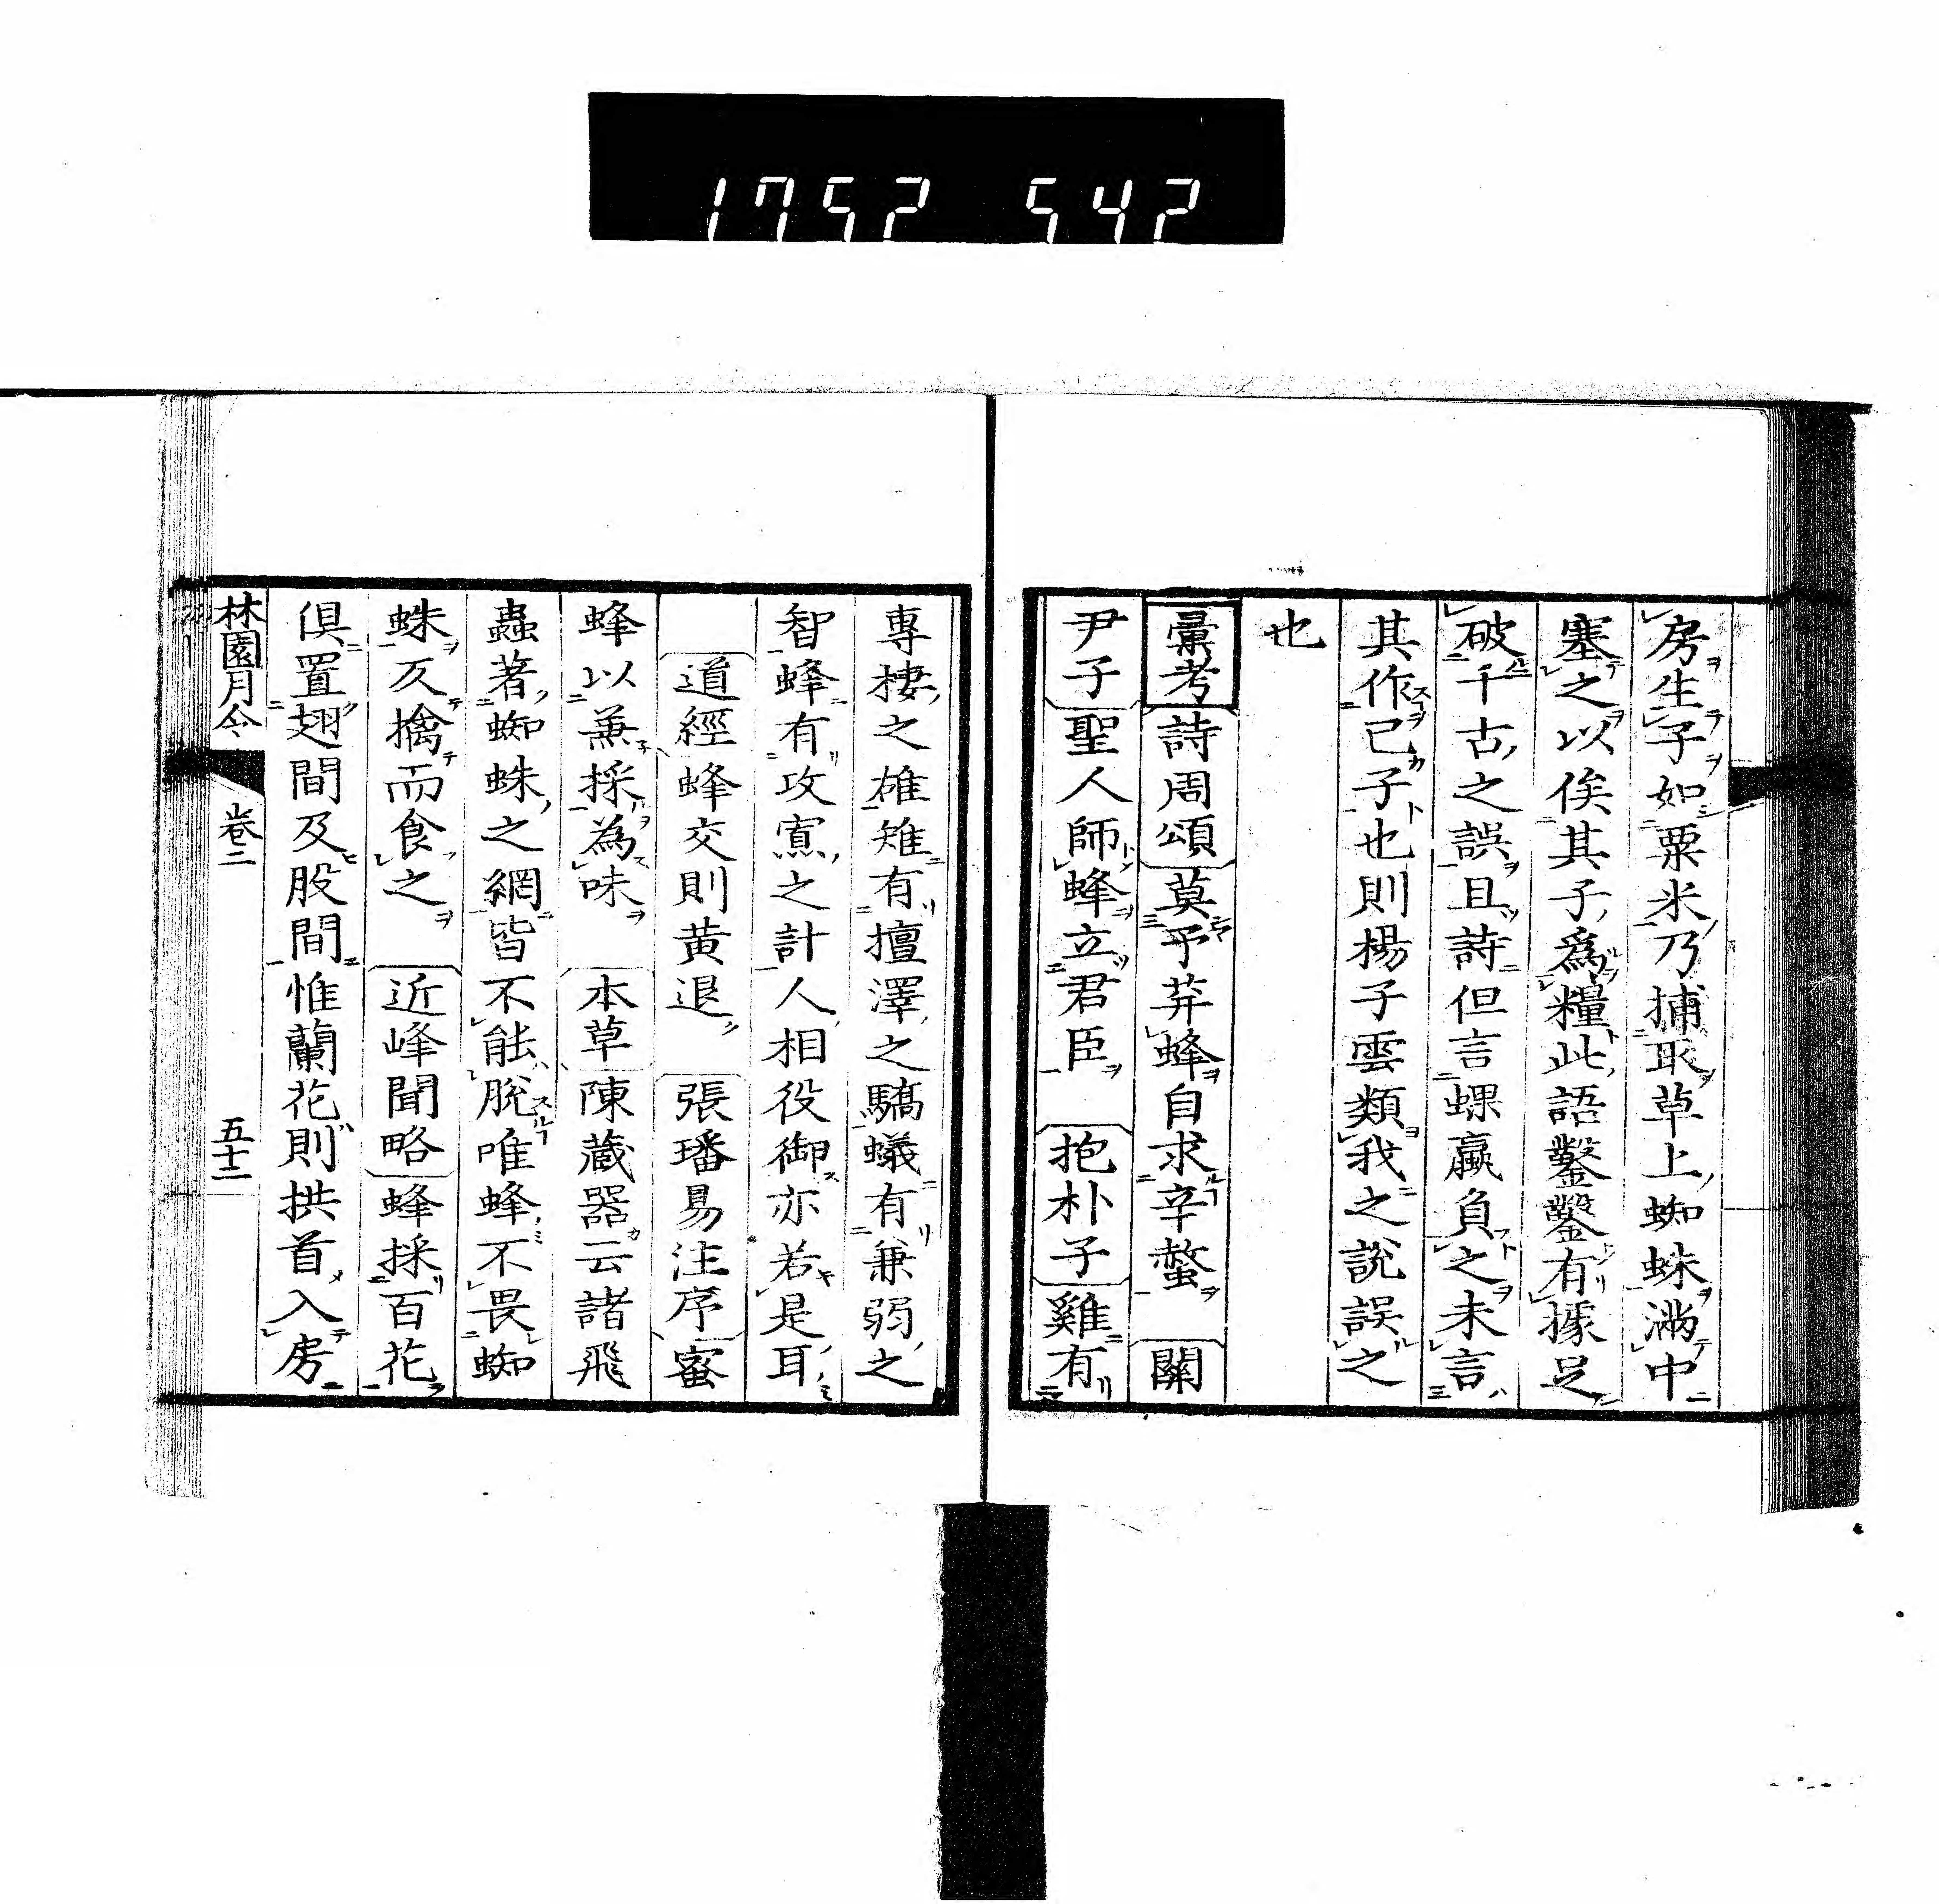 1752 542
房生子如粟米乃捕取草上蜘蛛滿中
塞之以俟其子爲糧此語鑿鑿有據足
破千古之誤且詩但言蜾蠃負之未言
其作己子也則楊子雲類我之說誤之
也
彙考詩周頌莫予荓蜂自求辛螫 關
尹子聖人師蜂立君臣 抱朴子雞有
專棲之雄雉有擅澤之驕蟻有兼弱之
智蜂有攻寡之計人相役御亦若是耳
道經蜂交則黄退 張璠易注序蜜
蜂以兼採為味 本草陳藏器云諸飛
蟲著蜘蛛之網皆不能脫唯蜂不畏蜘
蛛反擒而食之 近峰聞略蜂採百花
俱置翅間及股間惟蘭花則拱首入房
林園月令 卷二 五十二